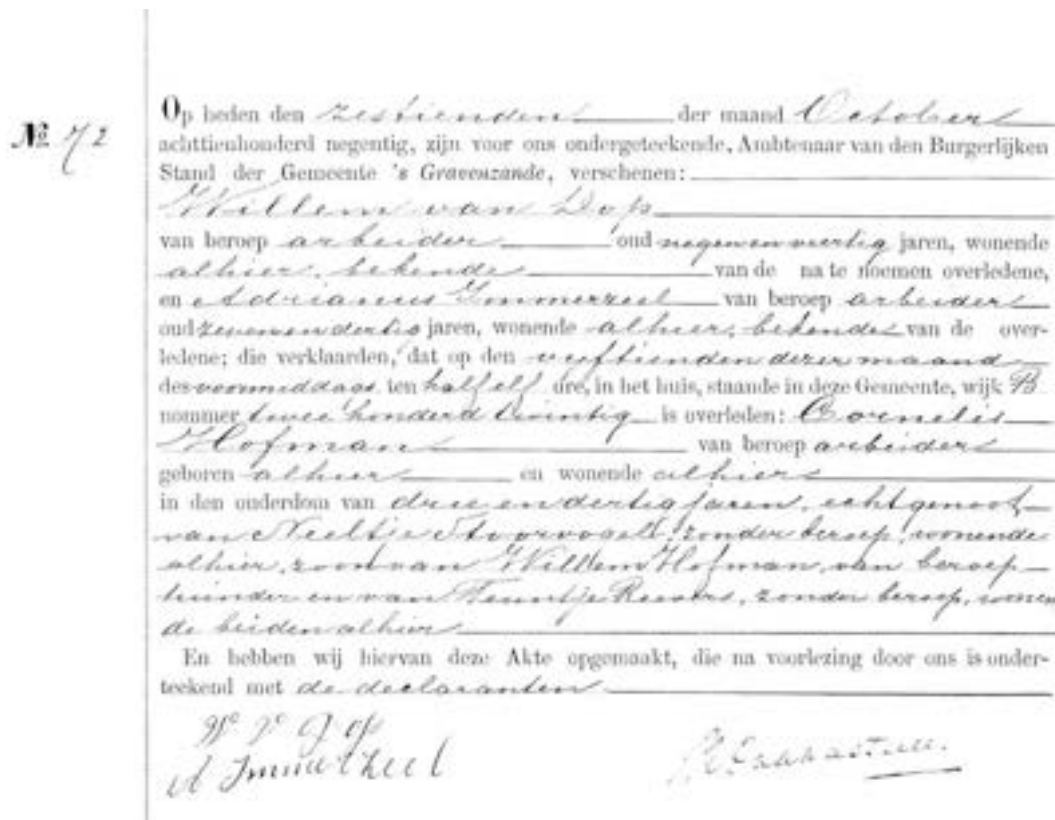 Nº 72
Op heden den zestienden der maand October
achttienhonderd negentig, zijn voor ons ondergeteekende, Ambtenaar van den Burgerlijken
Stand der Gemeente 's Gravenzande, verschenen:
Willem van Dop
van beroep arbeider oud negen en veertig jaren, wonende
alhier, bekende van de na te noemen overledene,
en Adrianus Immerzeel van beroep arbeider
oud zeven en dertig jaren, wonende alhier, bekende van de over-
ledene; die verklaarden, dat op den vijftienden dezer maand
des voormiddags ten half elf ure, in het huis, staande in deze Gemeente, wijk B
nommer twee honderd twintig is overleden: Cornelis
Hofman van beroep arbeider
geboren alhier en wonende alhier
in den ouderdom van drie en dertig jaren, echtgenoot
van Neeltje Stoorvogel, zonder beroep, wonende
alhier, zoon van Willem Hofman, van beroep
tuinder en van Teuntje, zonder beroep, wonen
de beiden alhier
En hebben wij hiervan deze Akte opgemaakt, die na voorlezing door ons is onder-
teekend met de declaranten
W v Dop
A Immerzeel